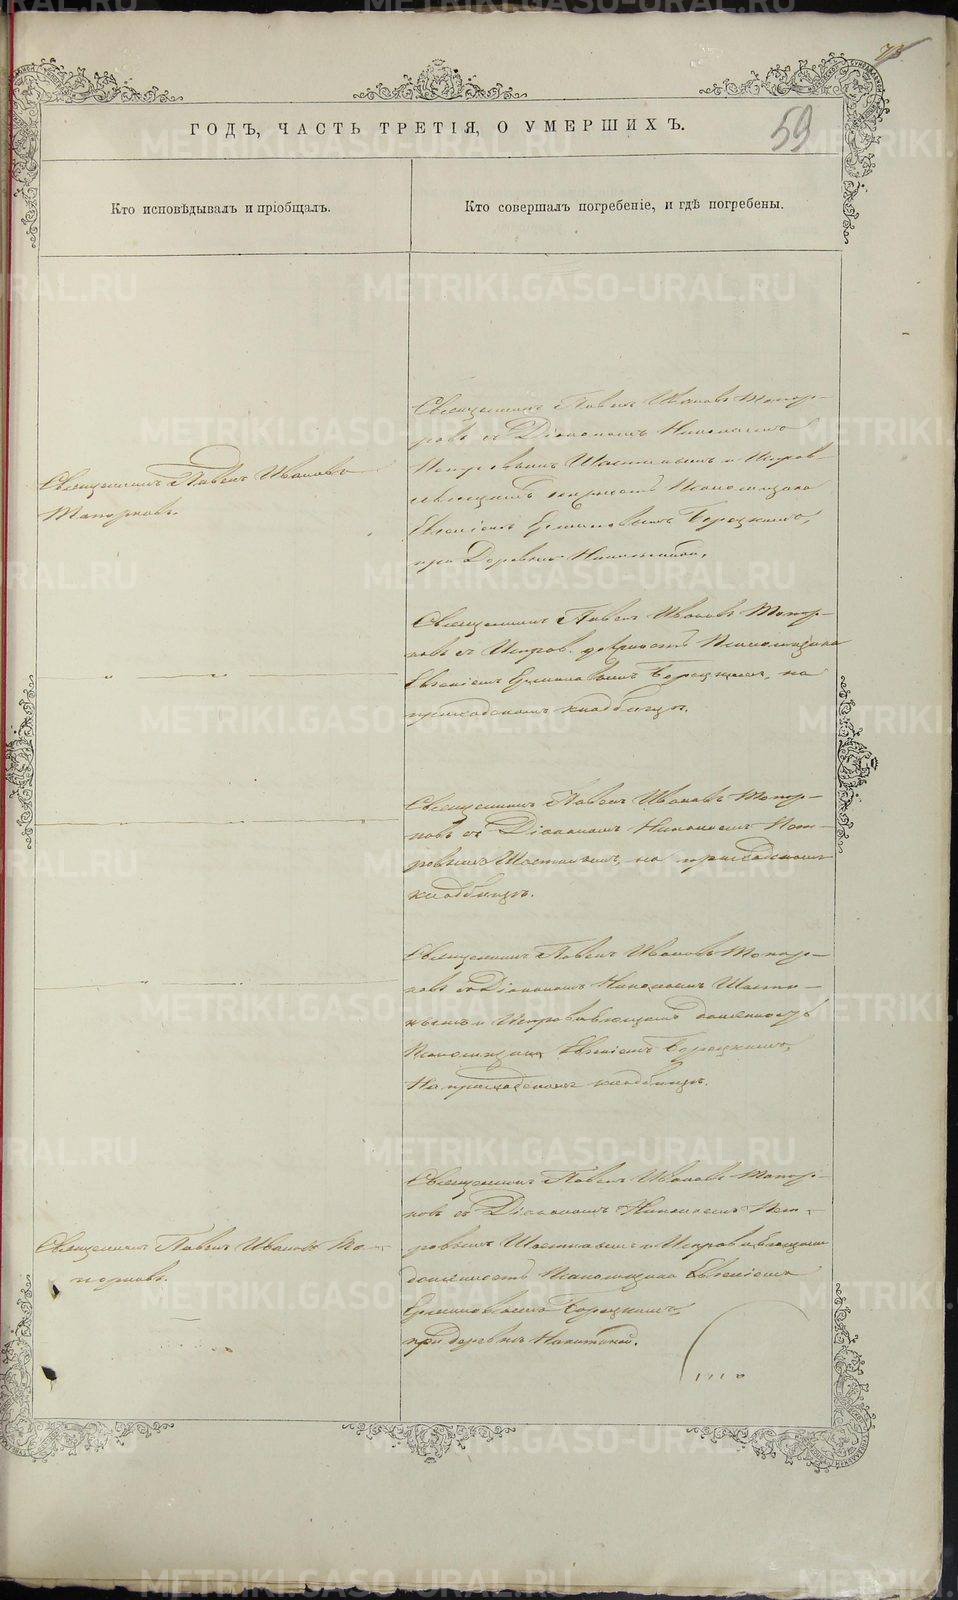 59
ГОДЪ, ЧАСТЬ ТРЕТІЯ, О УМЕРШИХЪ.
Кто исповѣдывалъ и пріобщалъ.
Кто совершалъ погребеніе, и гдѣ погребены.
Священникъ Павелъ Ивановъ
Топорковъ.
Священникъ Павелъ Ивановъ Топор-
ковъ съ Діакономъ Николаемъ
Петровымъ и Исправ
ляющимъ должность Псаломщика
Евгеніемъ Борецкимъ,
при Деревнѣ
Священникъ Павелъ Ивановъ Топор-
ковъ съ Исправ. должность Псаломщика
Евгеніемъ Борецкимъ, на
приходскомъ кладбищѣ.
Священникъ Павелъ Ивановъ Топор-
ковъ съ Діакономъ Николаемъ Пет-
ровымъ на приходскомъ
кладбищѣ.
Священникъ Павелъ Ивановъ Топор-
ковъ съ Діакономъ Николаемъ
и Исправляющимъ должность
Псаломщика Евгеніемъ Борецкимъ,
На приходскомъ кладбищѣ.
Священникъ Павелъ Ивановъ То-
порковъ.
Священникъ Павелъ Ивановъ Топор-
ковъ съ Діакономъ Николаемъ Пет-
ровымъ и Исправляющимъ
должность Псаломщика Евгеніемъ
Борецкимъ,
при деревнѣ Никитиной.
METRIKI.GASO-URAL.RU